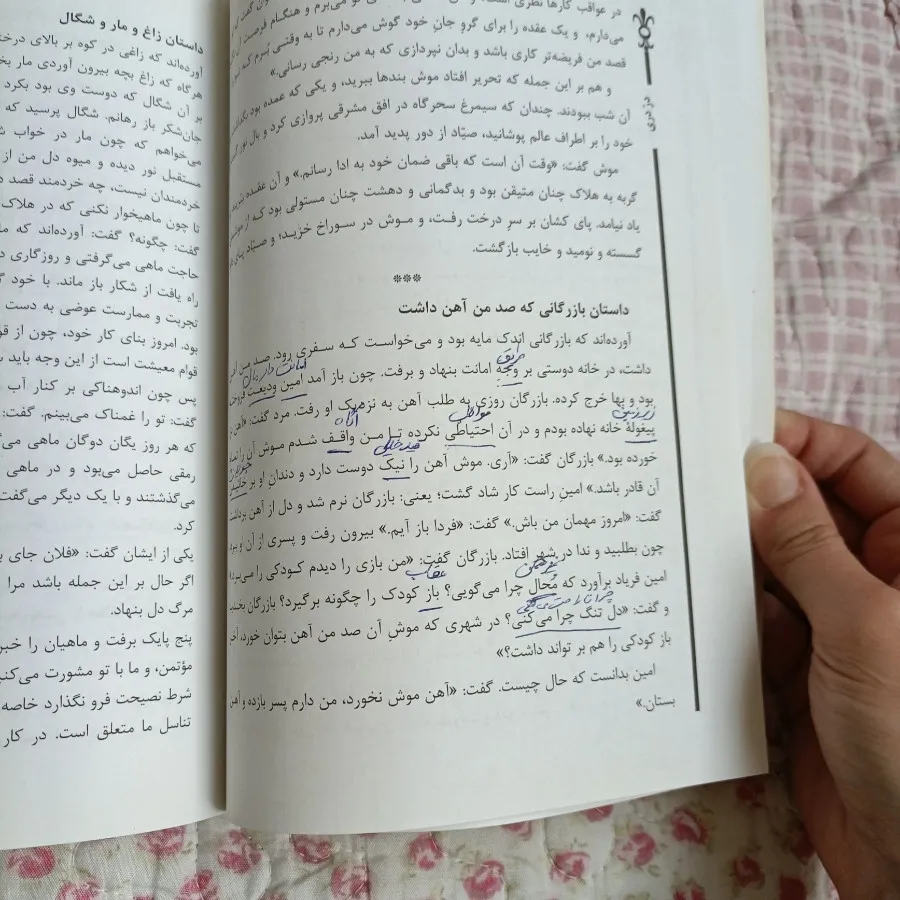 در عواقب کارها نظری است
می‌دارم، و یک عقده را برای گرو جانِ خود گوش می‌دارم تا به وقتی بُرم که
قصد من فریضه‌تر کاری باشد و بدان نپردازی که به من رنجی رسانی.»
و هم بر این جمله که تحریر افتاد موش بندها ببرید، و یکی که عمده بود
آن شب ببودند. چندان که سیمرغ سحرگاه در افق مشرقی پروازی کرد و بال نور
خود را بر اطراف عالم پوشانید، صیّاد از دور پدید آمد.
موش گفت: «وقت آن است که باقی ضمان خود به ادا رسانم.» و آن عقده
گربه به هلاک چنان متیقن بود و بدگمانی و دهشت چنان مستولی بود که از
یاد نیامد. پای کشان بر سرِ درخت رفت، و موش در سوراخ خزید؛ و صیّاد
گسسته و نومید و خایب بازگشت.
***
داستان بازرگانی که صد من آهن داشت
آورده‌اند که بازرگانی اندک مایه بود و می‌خواست که سفری رود. صد من
داشت، در خانه دوستی بر وجهِ امانت بنهاد و برفت. چون باز آمد امین ودیعت
طریق
امانت دار
بود و بها خرج کرده. بازرگان روزی به طلب آهن به نزدیک او رفت. مرد گفت:
پیغولهٔ خانه نهاده بودم و در آن احتیاطی نکرده تا من واقف شدم موش آن را
آگاه
خورده بود.» بازرگان گفت: «آری. موش آهن را نیک دوست دارد و دندانِ او بر
خیلی
آن قادر باشد.» امینِ راست کار شاد گشت؛ یعنی: بازرگان نرم شد و دل از آهن برداشت
گفت: «امروز مهمان من باش.» گفت: «فردا باز آیم.» بیرون رفت و پسری از آن او
چون بطلبید و ندا در شهر افتاد. بازرگان گفت: «من بازی را دیدم کودکی را
امین فریاد برآورد که مُحال چرا می‌گویی؟ باز کودک را چگونه برگیرد؟ بازرگان
عقاب
و گفت: «دل تنگ چرا می‌کنی؟ در شهری که موشِ آن صد من آهن بتوان خورد،
باز کودکی را هم بر تواند داشت؟»
امین بدانست که حال چیست. گفت: «آهن موش نخورد، من دارم پسر بازده و آهن
بستان.»
داستان زاغ و مار و شگال
آورده‌اند که زاغی در کوه بر بالای
هرگاه که زاغ بچه بیرون آوردی مار
بر آن شگال که دوست وی بود بکرد
جان‌شکر باز رهانم. شگال پرسید که
می‌خواهم که چون مار در خواب
مستقبل نور دیده و میوه دل من از
خردمندان نیست، چه خردمند قصد
تا چون ماهیخوار نکنی که در هلاک
گفت: چگونه؟ گفت: آورده‌اند که
حاجت ماهی می‌گرفتی و روزگاری
راه یافت از شکار باز ماند. با خود
تجربت و ممارست عوضی به دست
بود. امروز بنای کار خود، چون از
قوام معیشت است از این وجه باید
پس چون اندوهناکی بر کنار آب
گفت: تو را غمناک می‌بینم. گفت:
که هر روز یگان دوگان ماهی
رمقی حاصل می‌بود و در ماهی
می‌گذشتند و با یک دیگر می‌گفت
کرد.
یکی از ایشان گفت: «فلان جای
اگر حال بر این جمله باشد مرا
مرگ دل بنهاد.
پنج پایک برفت و ماهیان را
مؤتمن، و ما با تو مشورت
شرط نصیحت فرو نگذارد خاصه
تناسل ما متعلق است. در کار